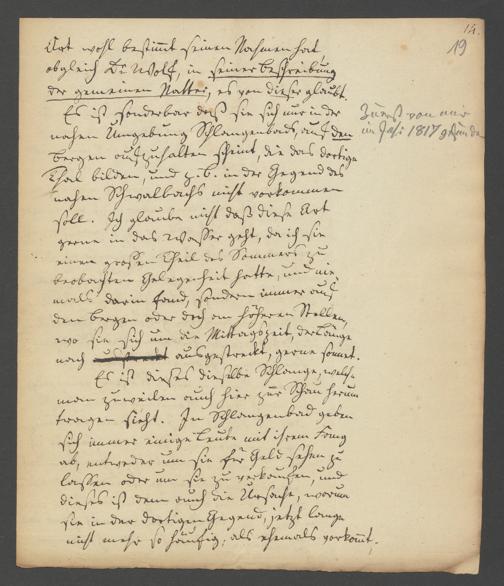 14.
19
Art wohl bestimt seinen Nahmen hat,
obgleich Dr. Wolf, in seiner Beschreibung
der gemeinen Natter, es von dieser glaubt.
Es ist sonderbar daß sie sich nur in der
nahen Umgebung Schlangenbads, auf den
Bergen aufzuhalten scheint, die das dortige
Thal bilden, und z. b. in der Gegend des
nahen Schwalbachs nicht vorkommen
soll. Ich glaube nicht daß diese Art
gerne in das Wasser geht, da ich sie
einen großen Theil des Sommers zu
beobachten Gelegenheit hatte, und nie-
mals darin fand, sondern immer auf
den Bergen oder doch an höheren Stellen,
wo sie sich um die Mittagszeit, der Länge
nach ausgestreckt, gerne sonnet.
Es ist dieses dieselbe Schlange, welche
man zuweilen auch hier zur Schau herum
tragen sieht. In Schlangenbad geben
sich immer einige Leute mit ihrem Fang
ab, entweder um sie für Geld sehen zu
lassen oder um sie zu verkaufen, und
dieses ist denn auch die Ursache, warum
sie in der dortigen Gegend, jetzt lange
nicht mehr so häufig, als ehemals vorkomt.
Zuerst von mir
im Jahr 1817 gefunden